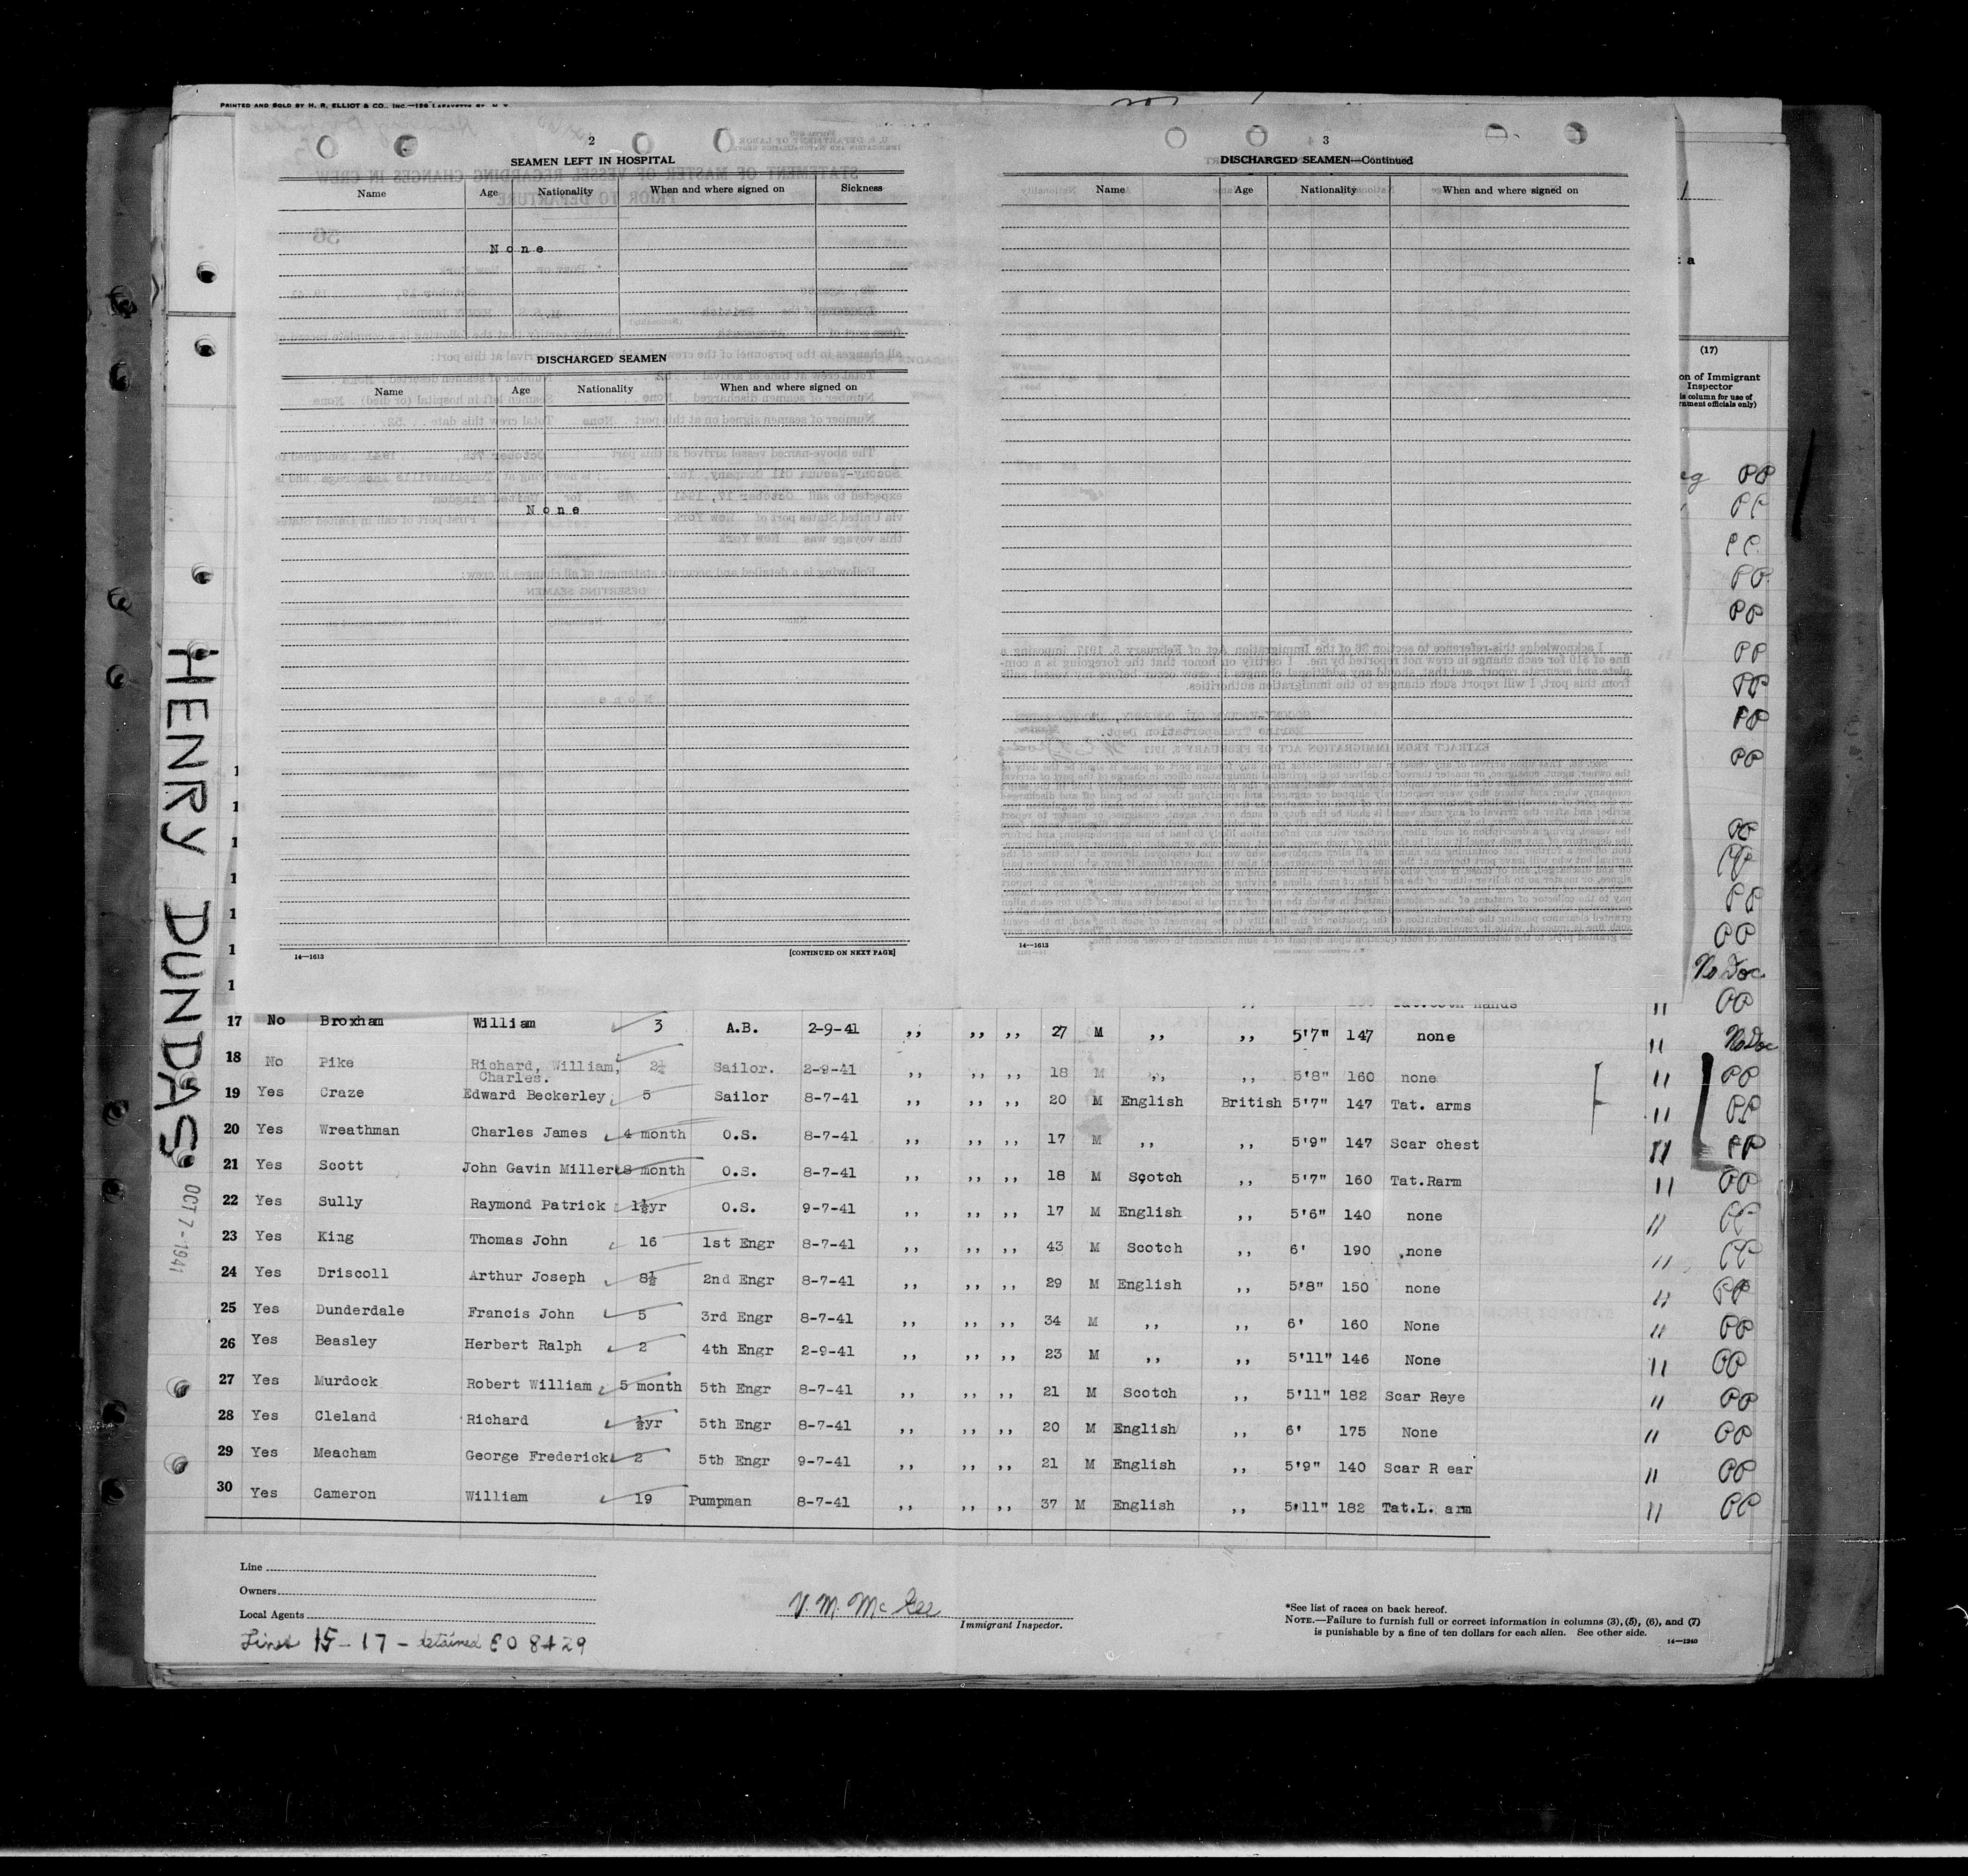 PRINTED AND SOLD BY H. R. ELLIOT & CO., INC.—128 LAFAYETTE ST. N. Y.
2
SEAMEN LEFT IN HOSPITAL
Name Age Nationality When and where signed on Sickness
None
DISCHARGED SEAMEN
Name Age Nationality When and where signed on
None
14—1613 [CONTINUED ON NEXT PAGE]
3
DISCHARGED SEAMEN—Continued
Name Age Nationality When and where signed on
14—1613
(17)
on of Immigrant
Inspector
is column for use of
rnment officials only)
PP
PP
PP
PP
PP
PP
PP
PP
PP
PP
PP
PP
PP
No Doc
PP
HENRY DUNDAS
OCT 7-1941
17 No Broxham William 3 A.B. 2-9-41 ,, ,, ,, 27 M ,, ,, 5'7" 147 none " No Doc
18 No Pike Richard, William, 2¼ Sailor. 2-9-41 ,, ,, ,, 18 M ,, ,, 5'8" 160 none " PP
Charles.
19 Yes Craze Edward Beckerley 5 Sailor 8-7-41 ,, ,, ,, 20 M English British 5'7" 147 Tat. arms " PP
20 Yes Wreathman Charles James 4 month O.S. 8-7-41 ,, ,, ,, 17 M ,, ,, 5'9" 147 Scar chest " PP
21 Yes Scott John Gavin Miller 8 month O.S. 8-7-41 ,, ,, ,, 18 M Scotch ,, 5'7" 160 Tat.Rarm " PP
22 Yes Sully Raymond Patrick 1½yr O.S. 9-7-41 ,, ,, ,, 17 M English ,, 5'6" 140 none " PP
23 Yes King Thomas John 16 1st Engr 8-7-41 ,, ,, ,, 43 M Scotch ,, 6' 190 none " PP
24 Yes Driscoll Arthur Joseph 8½ 2nd Engr 8-7-41 ,, ,, ,, 29 M English ,, 5'8" 150 none " PP
25 Yes Dunderdale Francis John 5 3rd Engr 8-7-41 ,, ,, ,, 34 M ,, ,, 6' 160 None " PP
26 Yes Beasley Herbert Ralph 2 4th Engr 2-9-41 ,, ,, ,, 23 M ,, ,, 5'11" 146 None " PP
27 Yes Murdock Robert William 5 month 5th Engr 8-7-41 ,, ,, ,, 21 M Scotch ,, 5'11" 182 Scar Reye " PP
28 Yes Cleland Richard ½yr 5th Engr 8-7-41 ,, ,, ,, 20 M English ,, 6' 175 None " PP
29 Yes Meacham George Frederick 2 5th Engr 9-7-41 ,, ,, ,, 21 M English ,, 5'9" 140 Scar R ear " PP
30 Yes Cameron William 19 Pumpman 8-7-41 ,, ,, ,, 37 M English ,, 5'11" 182 Tat.L. arm " PP
Line
Owners
Local Agents
Lines 15-17 - detained EO 8429
V. M. McKee
Immigrant Inspector.
*See list of races on back hereof.
NOTE.—Failure to furnish full or correct information in columns (3), (5), (6), and (7)
is punishable by a fine of ten dollars for each alien. See other side.
14—1240